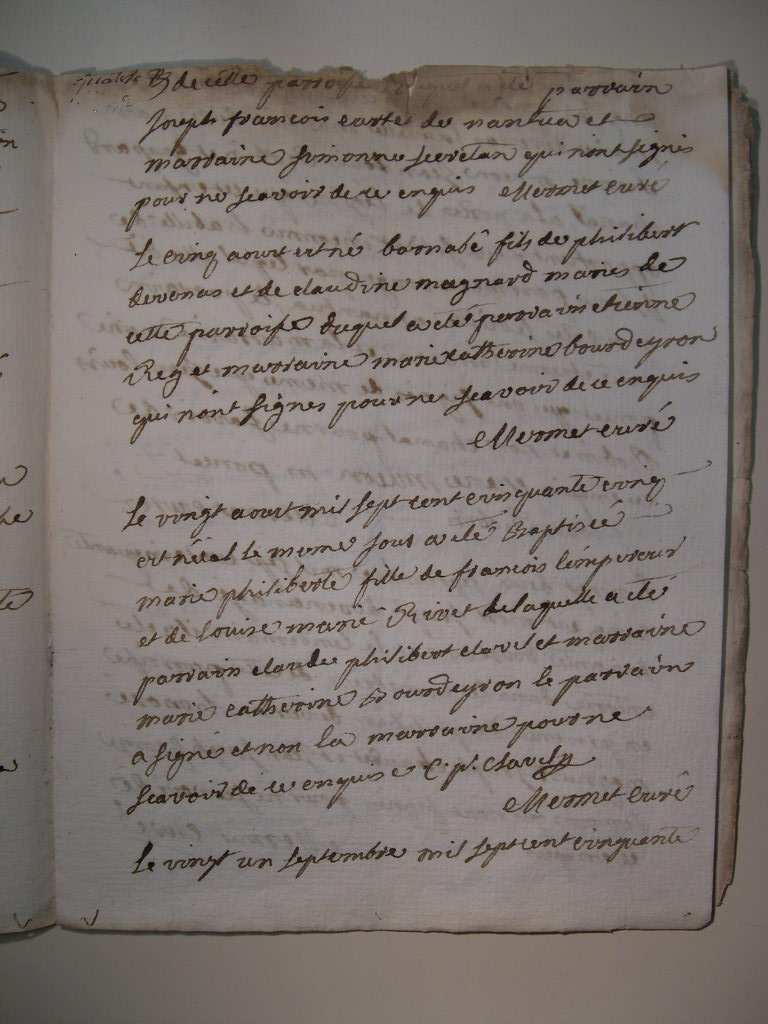 de cette parroisse duquel a eté parrain
joseph francois carte de nantua et
marraine simonne secretan qui nont signés
pour ne scavoir de ce enquis Mermet curé
Le cinq aoust est né barnabé fils de philibert
devenas et de claudine magnard mariés de
cette parroisse duquel a eté parrain etienne
Rey et marraine marie catherine bourdeyron
qui nont signés pour ne scavoir de ce enquis
Mermet curé
Le vingt aoust mil sept cent cinquante cinq
est né et le meme jour a eté Baptisée
marie philiberte fille de francois lempereur
et de louise marie Rivet de laquelle a eté
parrain claude philibert clavel et marraine
marie catherine Bourdeyron le parrain
a signé et non la marraine pour ne
scavoir de ce enquise C. p. Clavel
Mermet curé
Le vingt un septembre mil sept cent cinquante